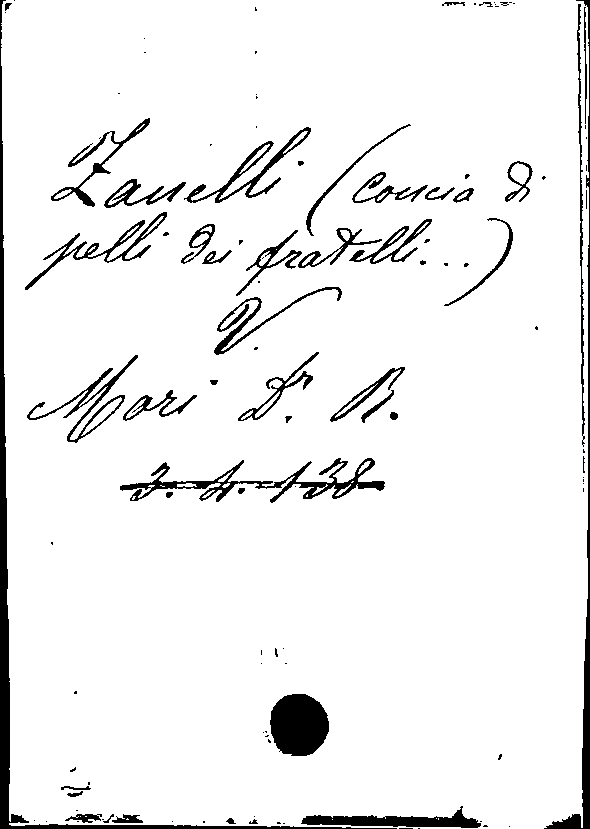 Zanelli (concia di
pelli dei fratelli...)
V.
Mori Dr. B.
3. 4. 138